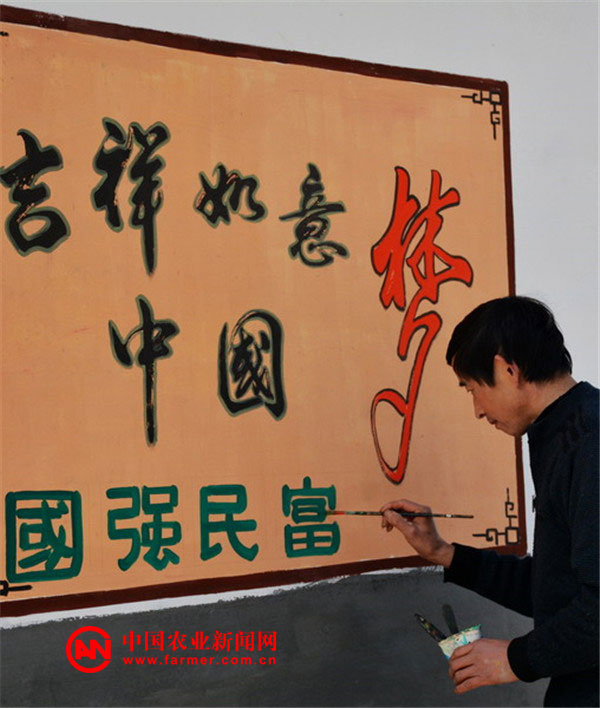 吉祥如意
中國梦
國强民富
中国农业新闻网
www.farmer.com.cn